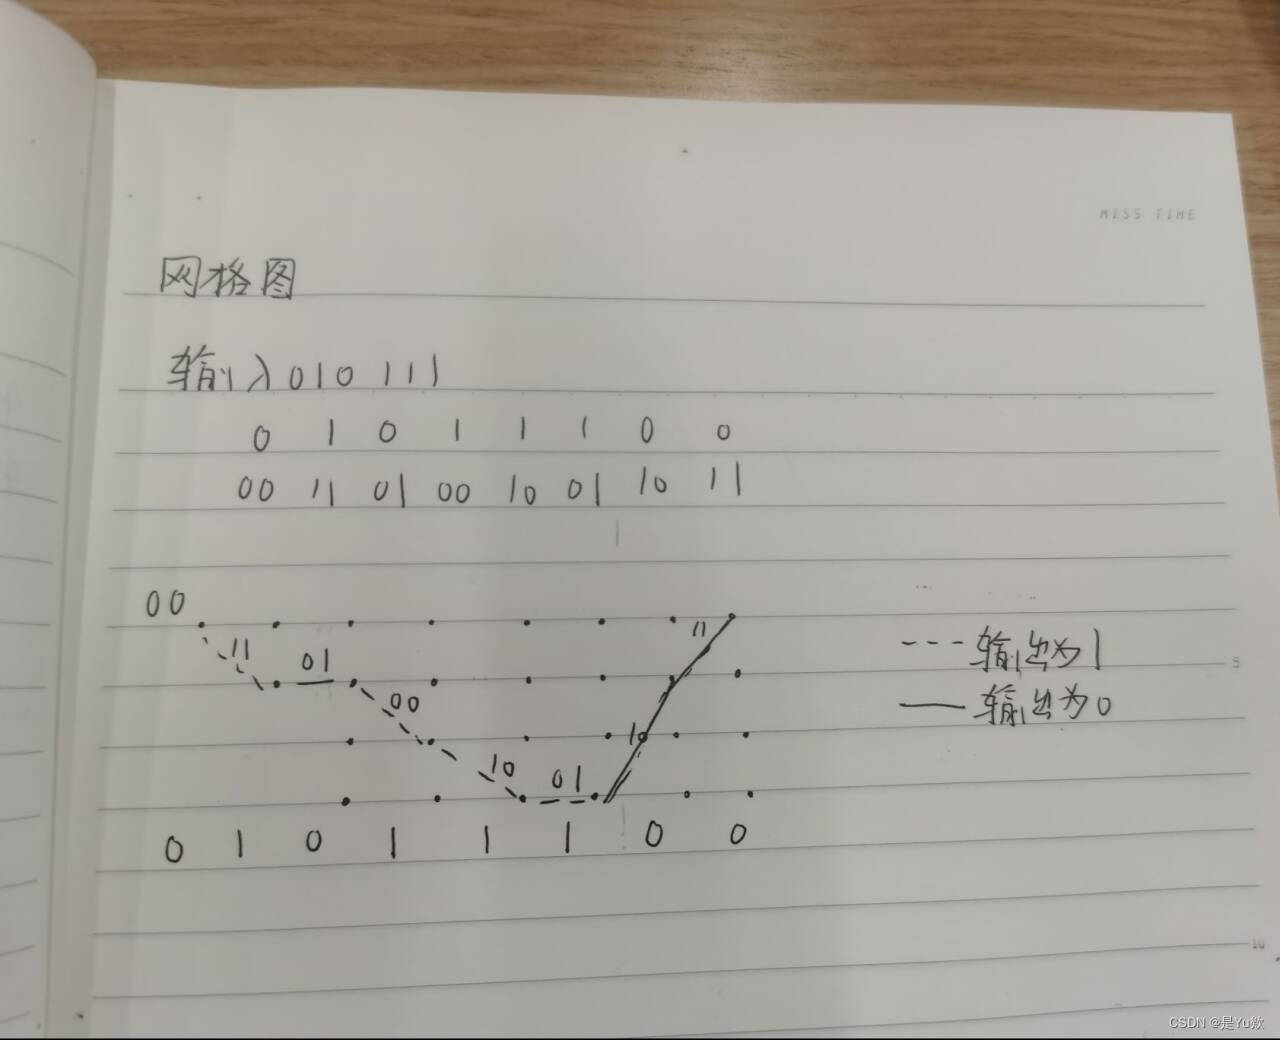 MISS TIME
网格图
输入010 111
0 1 0 1 1 1 0 0
00 11 01 00 10 01 10 11
00
11 01 00 10 01 10 11
0 1 0 1 1 1 0 0
--- 输出为1
— 输出为0
5
10
CSDN @是Yu欸